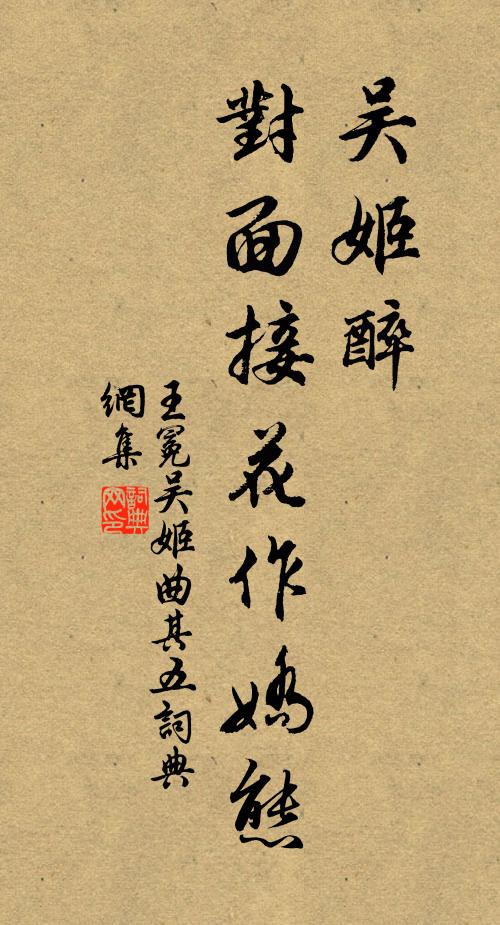 吴姬醉
對面接花作嬌態
王冕吴姬曲其五詞典
網集
詞典
网印